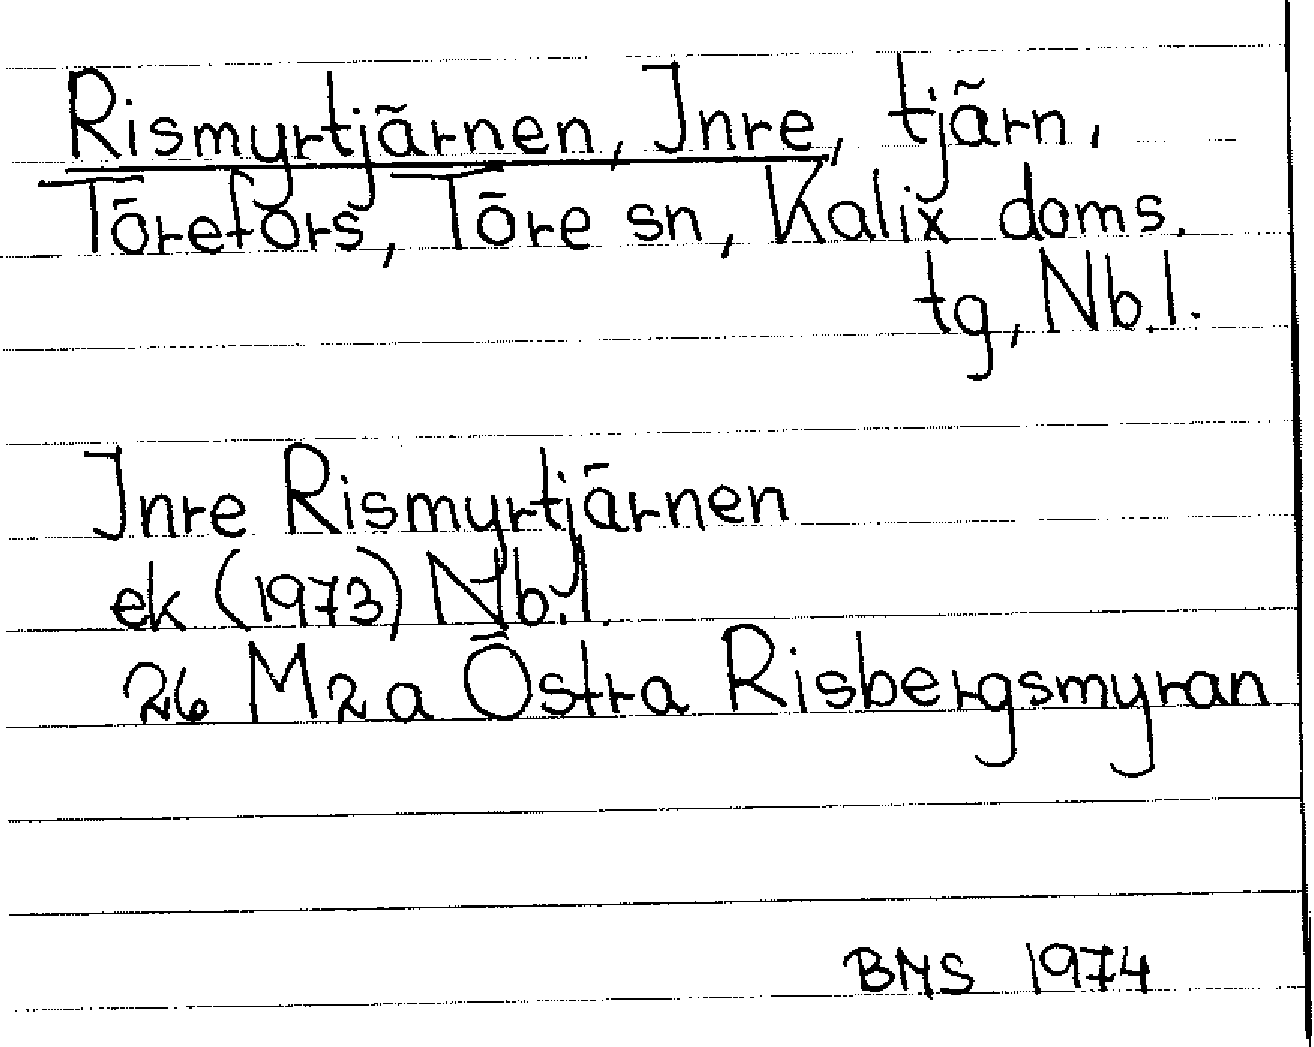 Rismyrtjärnen, Inre, tjärn.
Törefors, Töre sn, Kalix doms.
tg, Nb.l.
Inre Rismyrtjärnen
ek (1973) Nb.l.
26 M 2 a Östra Risbergsmyran
BMS 1974